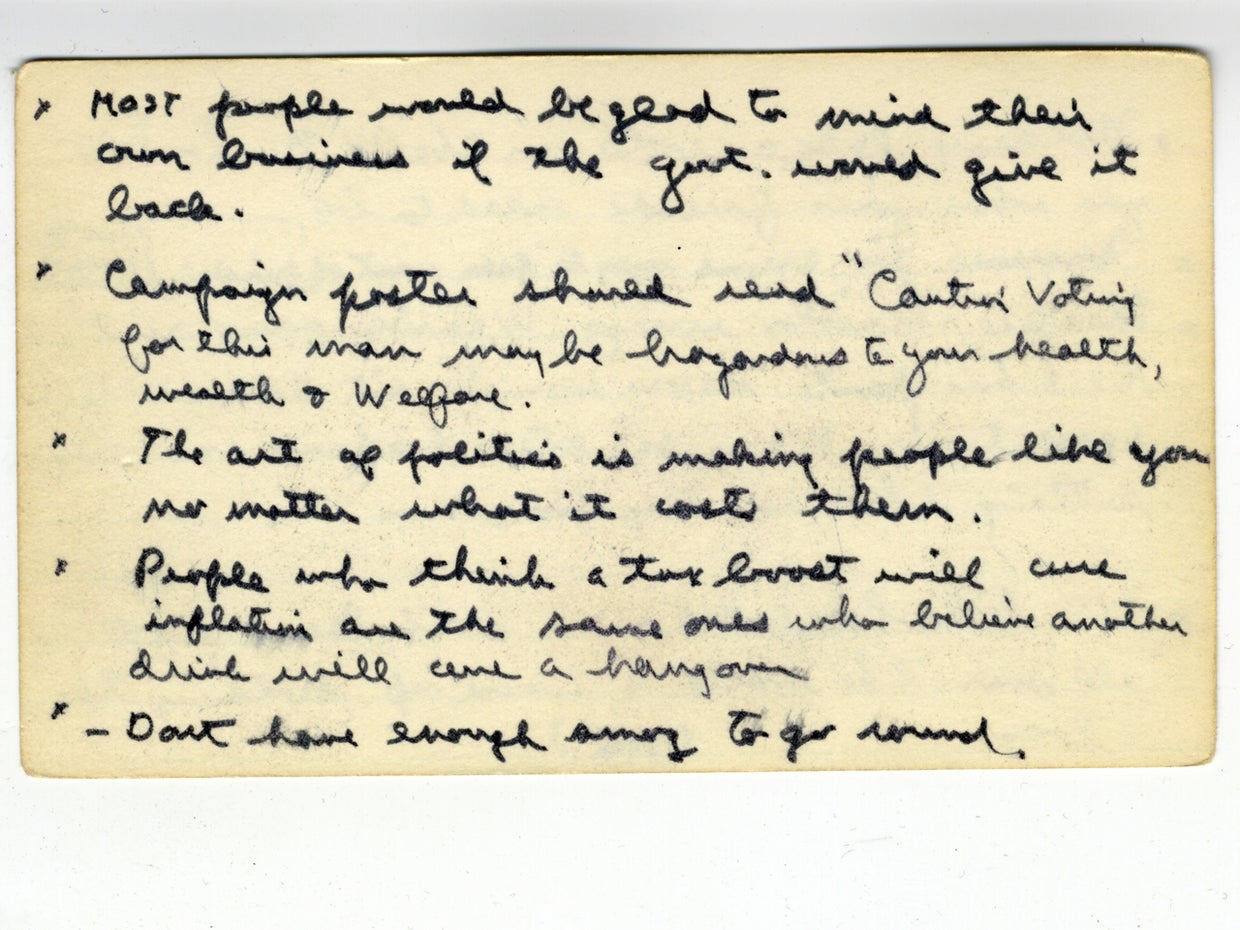 x Most people would be glad to mind their
own business if the govt. would give it
back.
x Campaign poster should read "Caution Voting
for this man may be hazardous to your health,
wealth & Welfare.
x The art of politics is making people like you
no matter what it costs them.
x People who think a tax boost will cure
inflation are the same ones who believe another
drink will cure a hangover
x – Dont have enough smog to go round.